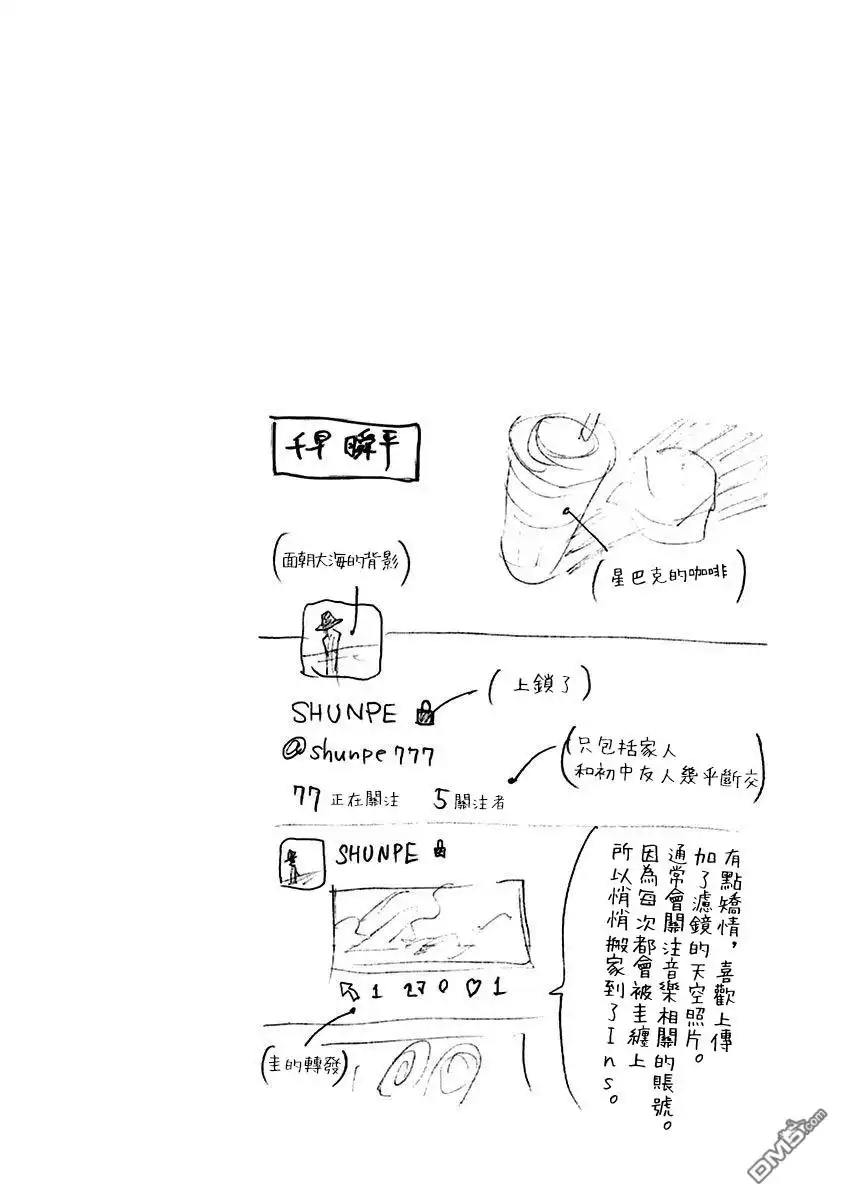 千早 瞬平
(面朝大海的背影)
(星巴克的咖啡)
SHUNPE
(上鎖了)
@shunpe777
(只包括家人
和初中友人幾乎斷交)
77 正在關注 5 關注者
SHUNPE
有點矯情，喜歡上傳
加了濾鏡的天空照片。
通常會關注音樂相關的賬號。
因為每次都會被圭纏上
所以悄悄搬家到了Ins。
1 27 0 ♡ 1
(圭的轉發)
DM5.com